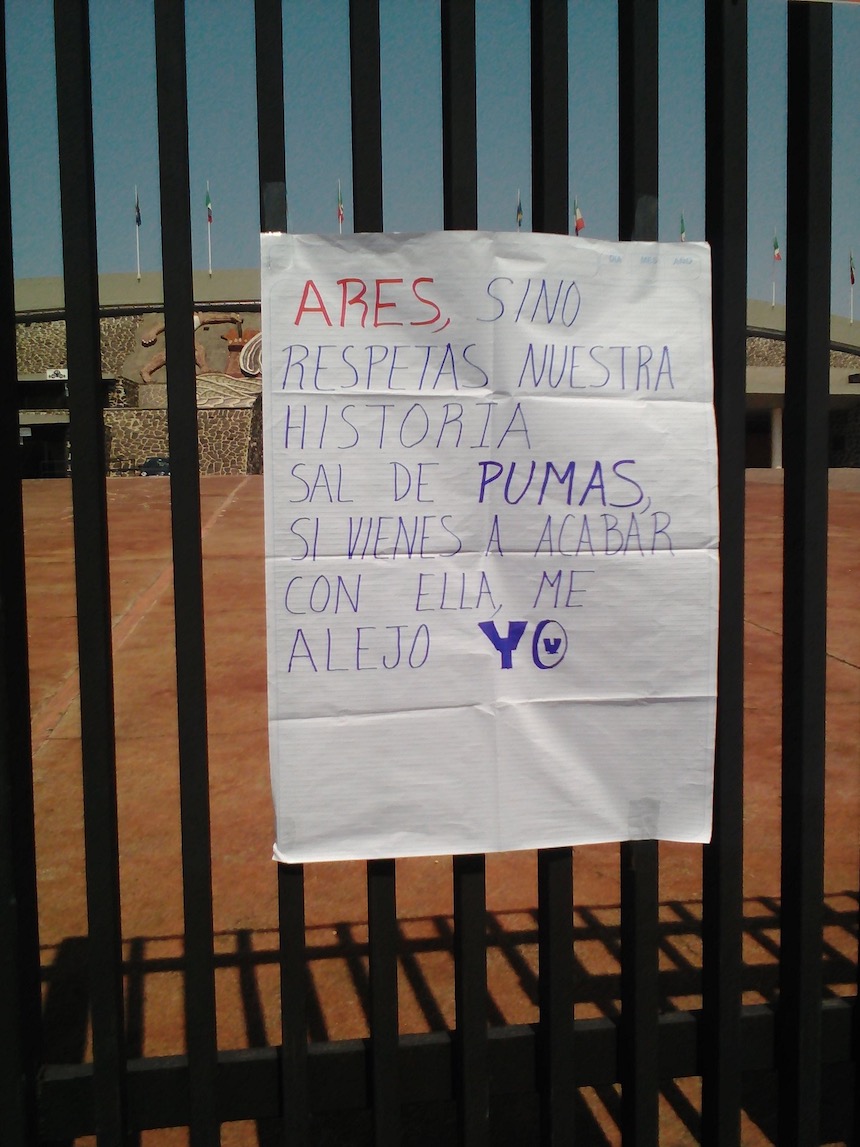 ARES, SINO
RESPETAS NUESTRA
HISTORIA
SAL DE PUMAS,
SI VIENES A ACABAR
CON ELLA, ME
ALEJO YO